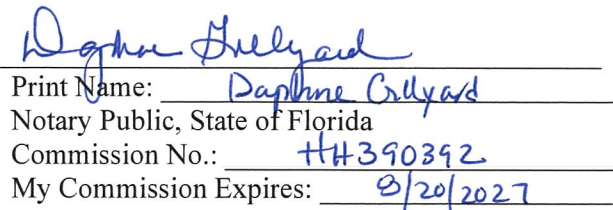 Daphne
Print Name: Daphne
Notary Public, State of Florida
Commission No.: HH390392
My Commission Expires: 8/20/2027